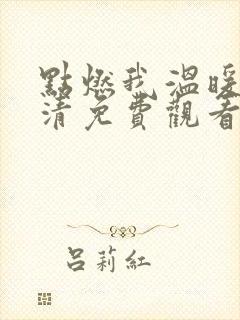 點燃我溫暖
清免費觀看
呂莉紅